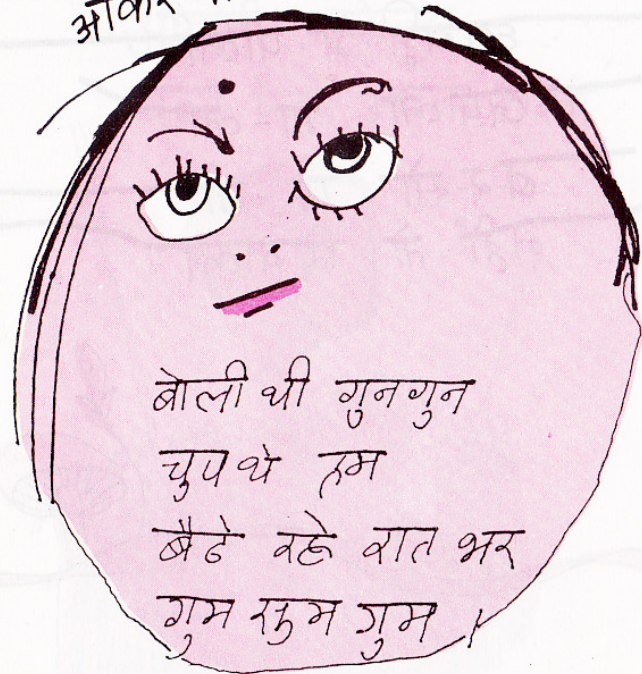 बोली थी गुनगुन
चुप थे तुम
बैठे रहे रात भर
गुम सुम गुम।